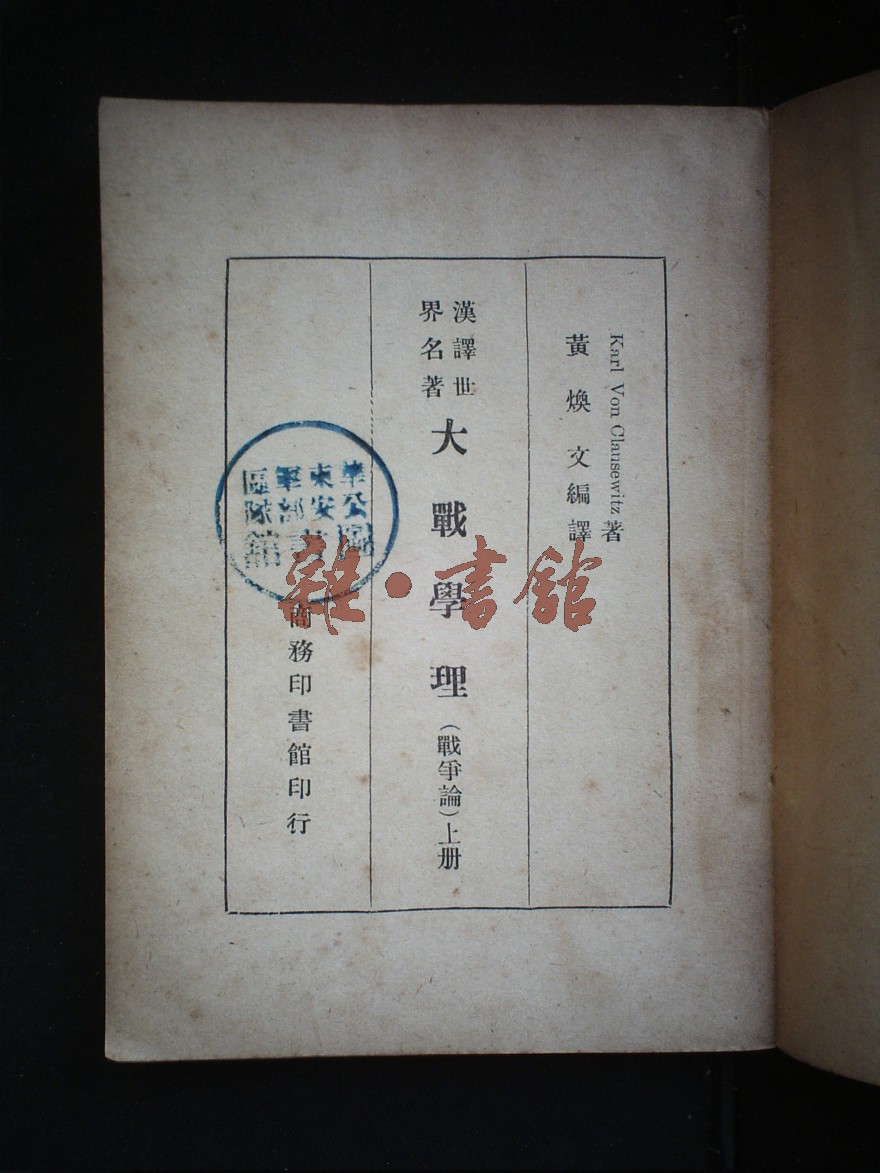 Karl Von Clausewitz 著
黃煥文編譯
漢譯世
界名著
大戰學理(戰爭論)上册
商務印書館印行
東安
軍部
區隊
館
雜·書館